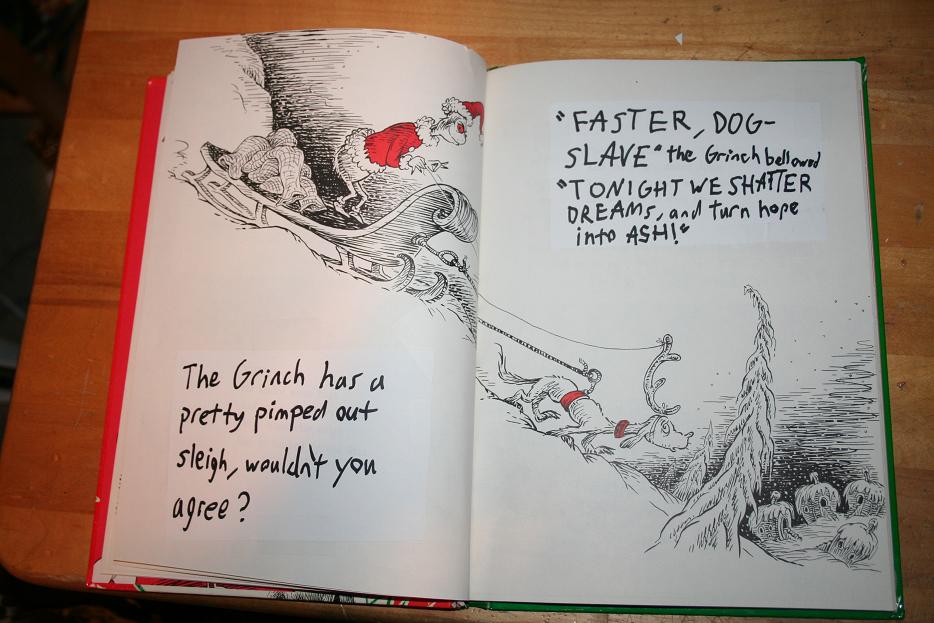 The Grinch has a
pretty pimped out
sleigh, wouldn't you
agree?
"FASTER, DOG-
SLAVE" the Grinch bellowed
"TONIGHT WE SHATTER
DREAMS, and turn hope
into ASH!"